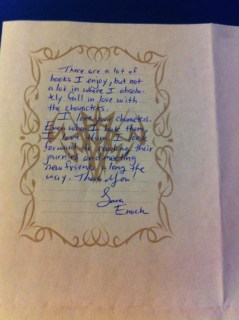 There are a lot of
books I enjoy, but not
a lot in where I abso-
tely fall in love with
the characters.
I love your characters.
Even when I hate them,
I love them. I look
forward to reading their
journies and meeting
new friends along the
way. Thank you
Sara
Enoch